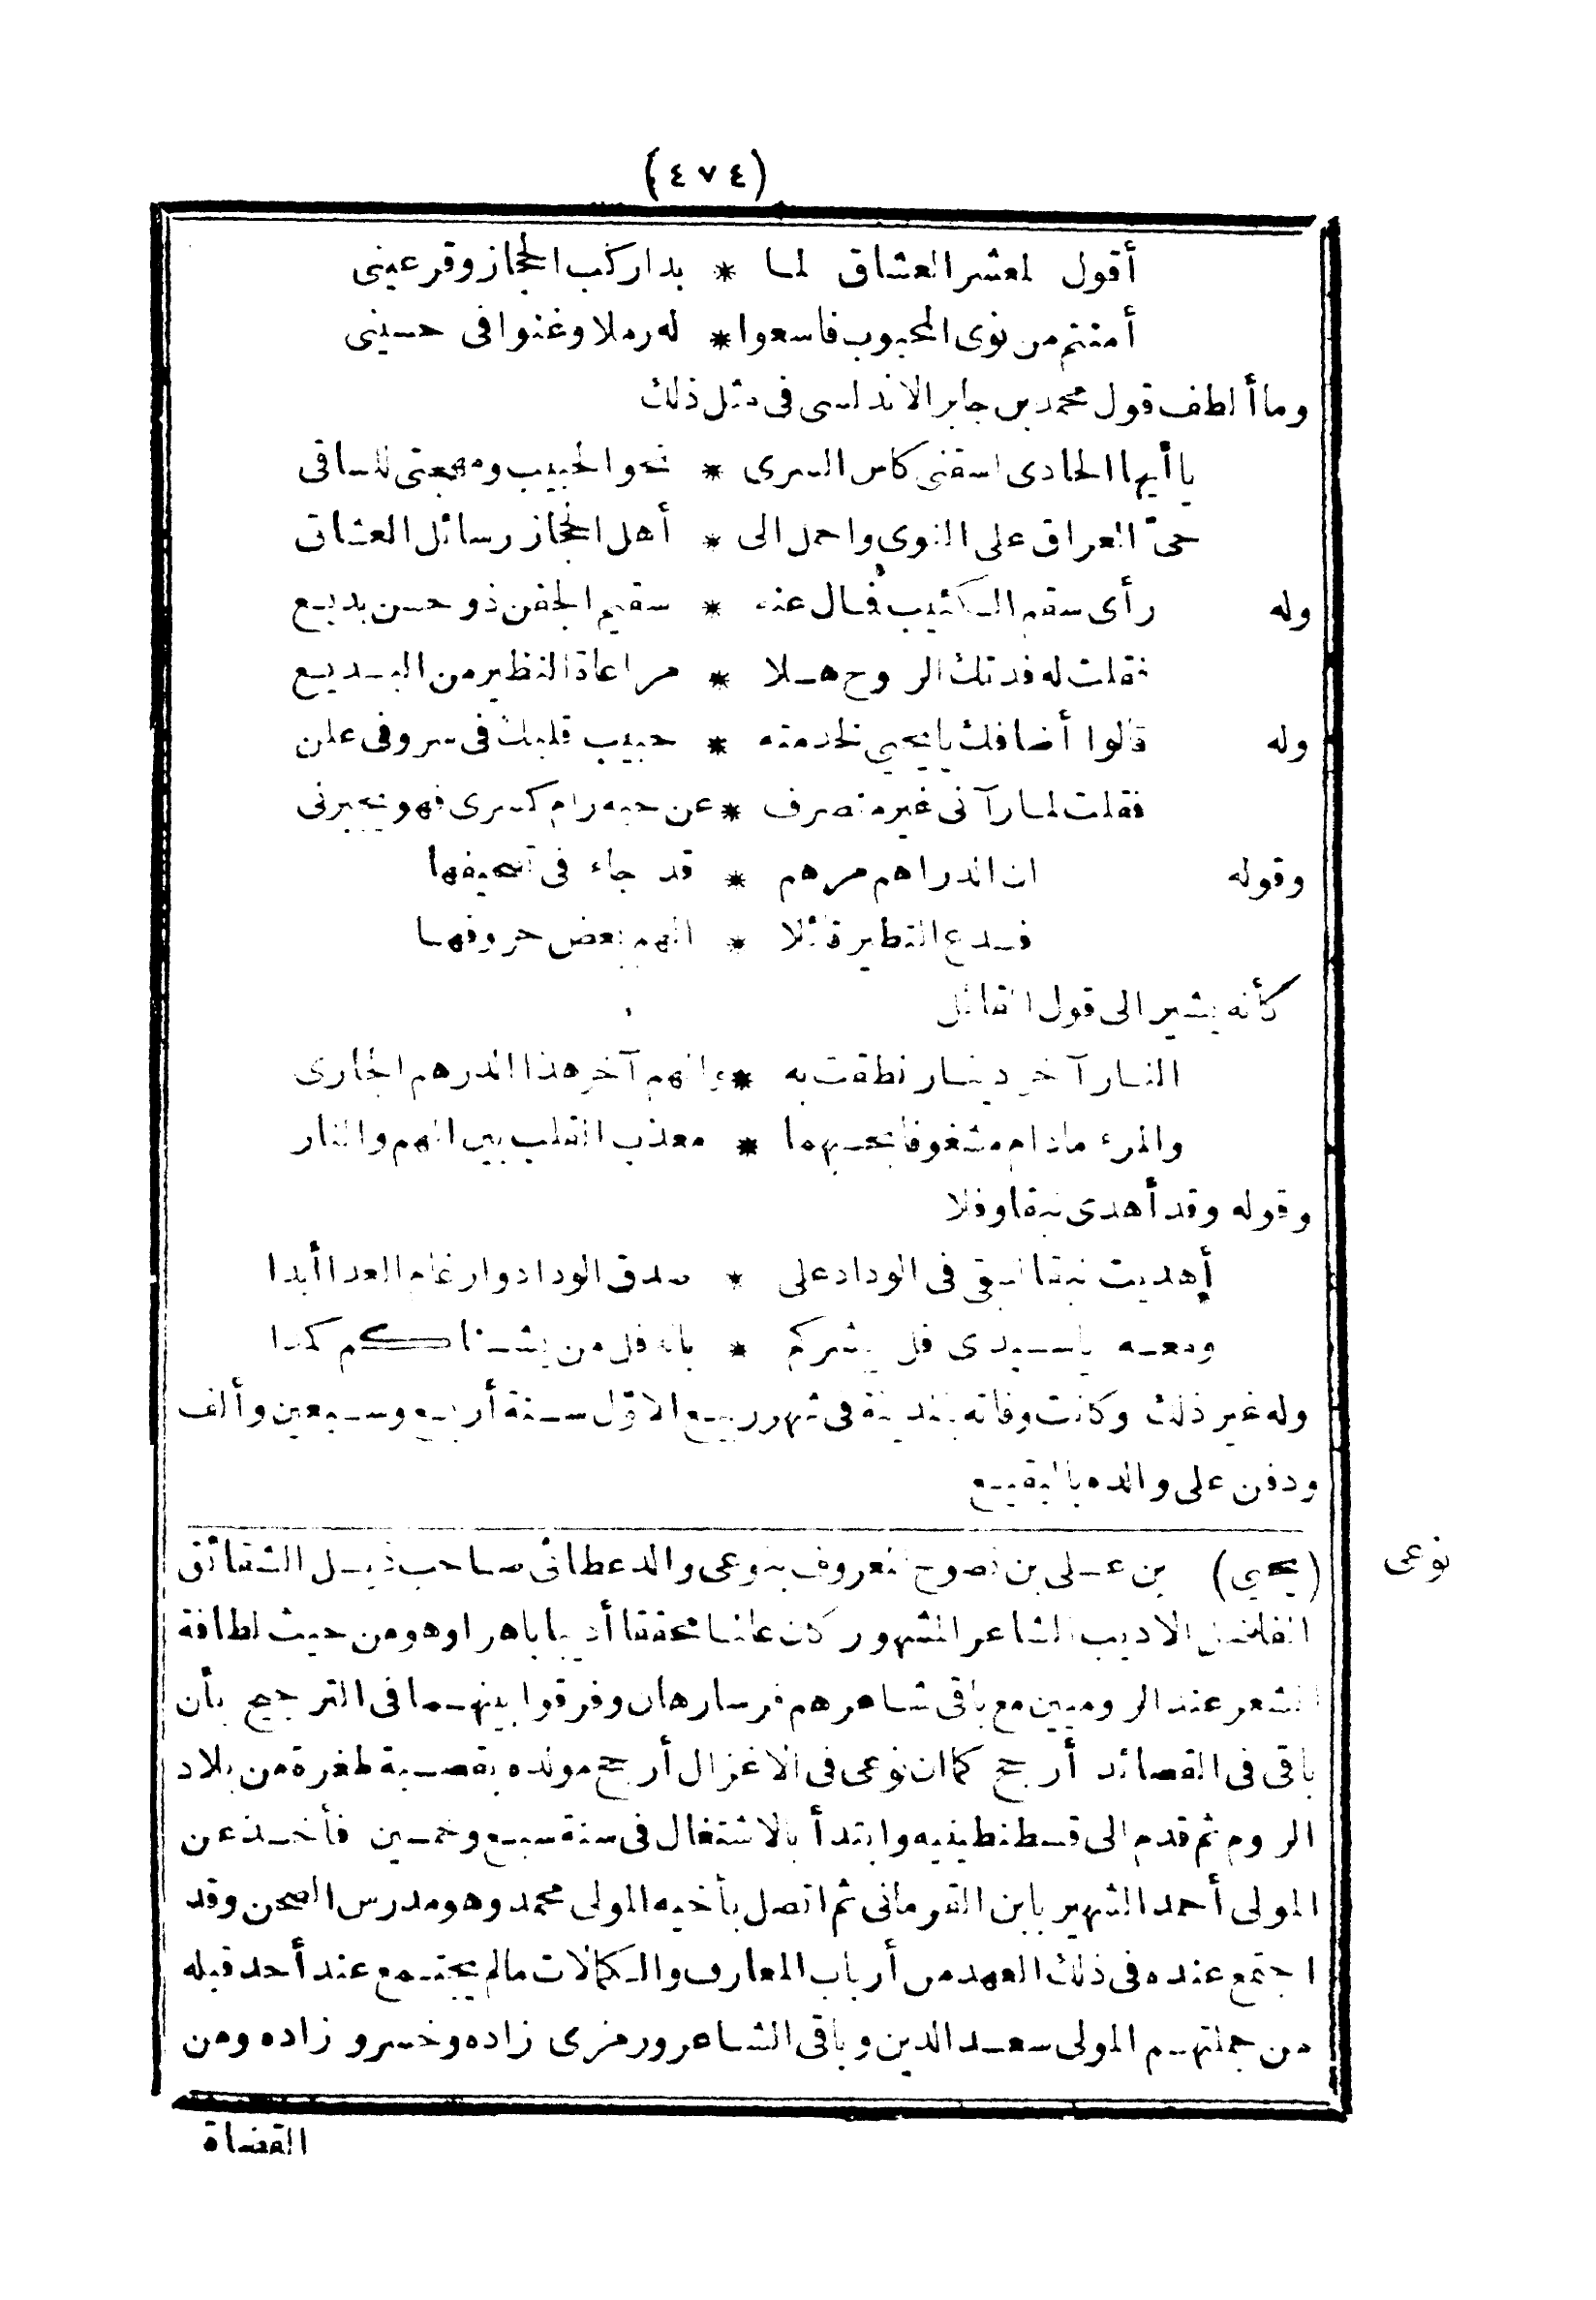 (٤٧٤)
أقول لمعشر العشاق لما * بدا ركب الحجاز وقر عيني
أمنتم من نوى المحبوب فاسعوا * له رملا وغنوا في حسيني
وما ألطف قول محمد بن جابر الاندلسي في مثل ذلك
يا أيها الحادي اسقني كاس السرى * نحو الحبيب ومهجتي للساقي
حيّ العراق على النوى واحمل الى * أهل الحجاز رسائل العشاق
وله رأى سقم الكئيب فمال عنه * سقيم الجفن ذو حسن بديع
فقلت له فدتك الروح هلا * مراعاة النظير من البديع
وله قالوا أضافك يا يحيي لخدمته * حبيب قلبك في سر وفي علن
فقلت لما رآني غير منصرف * عن حبه رام كسرى فهو يجبرني
وقوله ان الدراهم مرهم * قد جاء في تصحيفها
فدع التطير قائلا * الهم بعض حروفها
كأنه يشير الى قول القائل
النار آخر دينار نطقت به * والهم آخر هذا الدرهم الجاري
والمرء مادام مشغوفا بحبهما * معذب القلب بين الهم والنار
وقوله وقد أهدى نبقا وفلا
أهديت نبقا لنبقى في الوداد على * صدق الوداد وارغام العدا أبدا
ومعه يا سيدي فل يبشركم * بانه فل من يشناكم كمدا
وله غير ذلك وكانت وفاته بالمدينة في شهر ربيع الاوّل سنة أربع وسبعين وألف
ودفن على والده بالبقيع
نوعى
(يحيي) بن على بن نصوح المعروف بنوعى والد عطائى صاحب ذيل الشقائق
الفاضل الاديب الشاعر المشهور كان عالما محققا أديبا باهرا وهو من حيث لطافة
الشعر عند الروميين مع باقى شاعرهم فرسا رهان وفرقوا بينهما فى الترجيح بأن
باقى فى القصائد أرجح كما ان نوعى فى الاغزال أرجح مولده بقصبة طغرة من بلاد
الروم ثم قدم الى قسطنطينيه وابتدأ بالاشتغال فى سنة سبع وخمسين فأخذ عن
المولى أحمد الشهير بابن القرمانى ثم اتصل بأخيه المولى محمد وهو مدرس الصحن وقد
اجتمع عنده فى ذلك العهد من أرباب المعارف والكمالات مالم يجتمع عند أحد قبله
من جملتهم المولى سعد الدين وباقى الشاعر ورمزى زاده وخسرو زاده ومن
القضاة